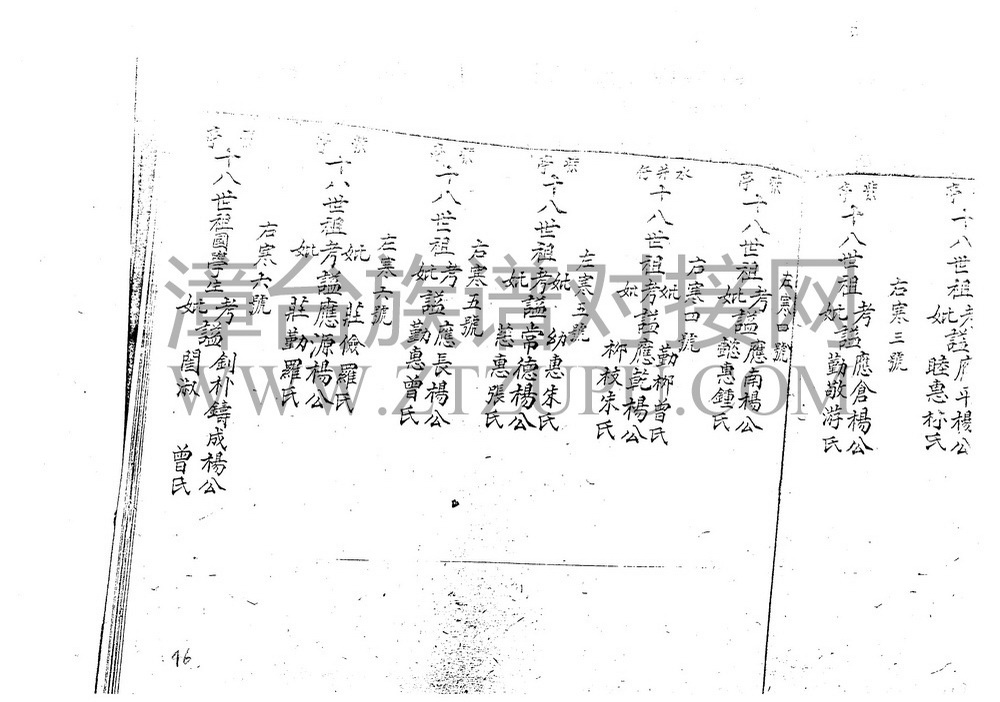 十八世祖
妣謚睦惠
楊公
氏
右寒三號
紫亭
十八世祖考謚應倉楊公
妣勤敬游氏
左寒四號
紫亭
十八世祖考謚應南楊公
妣懿惠鍾氏
右寒四號
水井仔
十八世祖
妣勤柳曾氏
考謚應乾楊公
妣柳枝朱氏
左寒五號
紫亭
十八世祖
妣幼惠朱氏
考謚常德楊公
妣慈惠張氏
右寒五號
紫亭
十八世祖考謚應長楊公
妣勤惠曾氏
左寒六號
紫亭
十八世祖
妣莊儉羅氏
考謚應源楊公
妣莊勤羅氏
右寒六號
亭
十八世祖國學生考謚創朴鑄成楊公
妣閨淑曾氏
46
漳台族谱对接网
WWW.ZTZUPU.COM